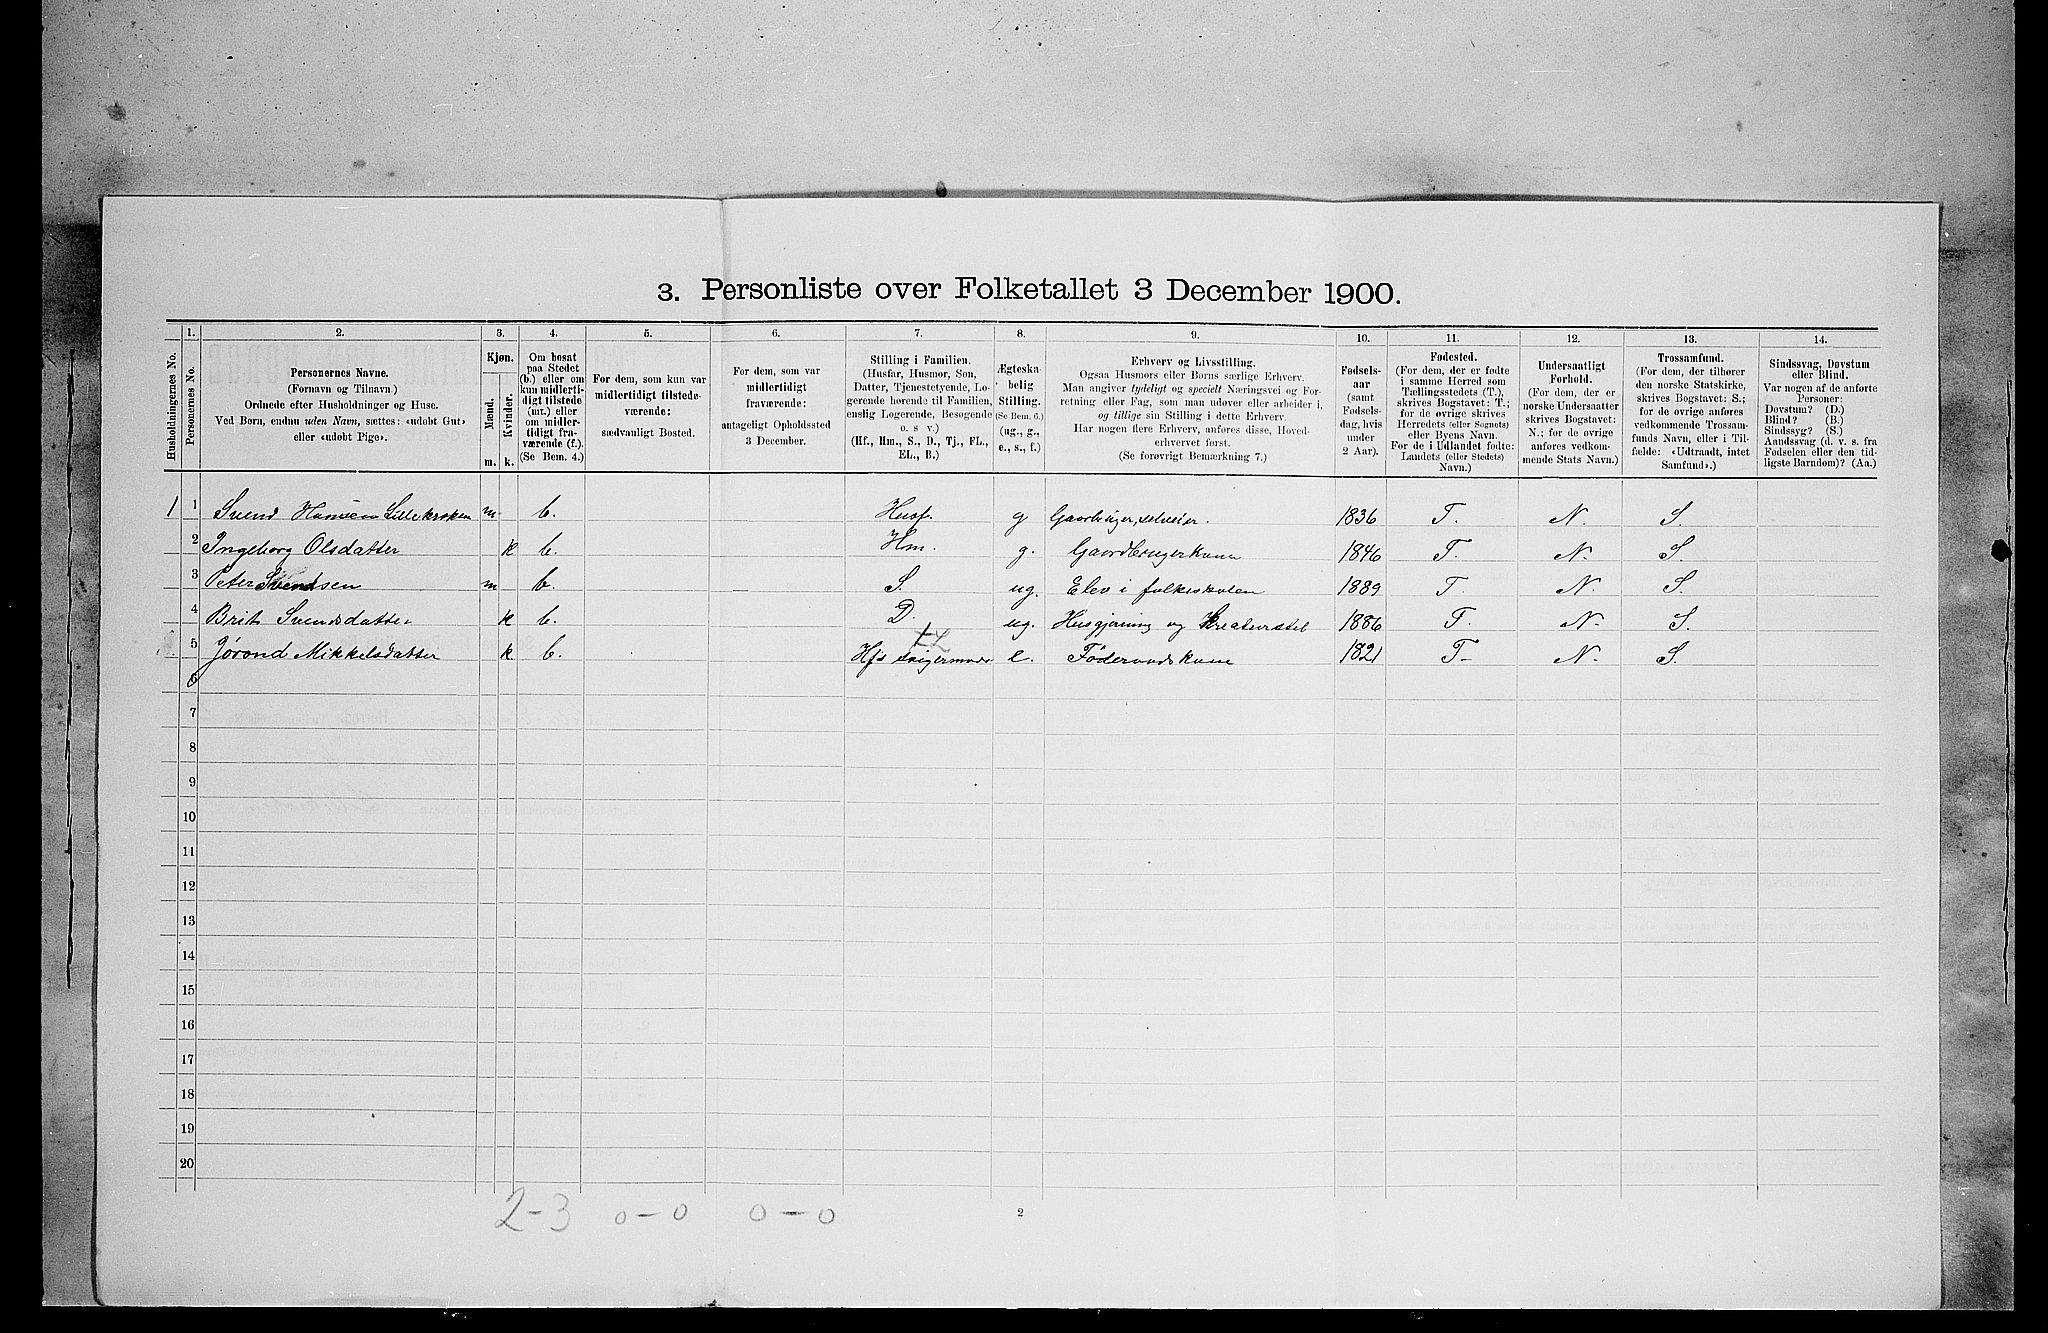 3. Personliste over Folketallet 3 December 1900.
Husholdningernes No.
1.
Personernes No.
2.
Personernes Navne.
(Fornavn og Tilnavn.)
Ordnede efter Husholdninger og Huse.
Ved Børn, endnu uden Navn, sættes: «udøbt Gut»
eller «udøbt Pige».
3.
Kjøn.
Mænd.
Kvinder.
m. k.
4.
Om bosat
paa Stedet
(b.) eller om
kun midlerti-
digt tilstede
(mt.) eller
om midler-
tidigt fra-
værende (f.).
(Se Bem. 4.)
5.
For dem, som kun var
midlertidigt tilstede-
værende:
sædvanligt Bosted.
6.
For dem, som var
midlertidigt
fraværende:
antageligt Opholdssted
3 December.
7.
Stilling i Familien.
(Husfar, Husmor, Søn,
Datter, Tjenestetyende, Lo-
gerende hørende til Familien,
enslig Logerende, Besøgende
o. s. v.)
(Hf., Hm., S., D., Tj., FL.,
EL., B.)
8.
Ægteska-
belig
Stilling.
(Se Bem. 6.)
(ug., g.,
e., s., f.)
9.
Erhverv og Livsstilling.
Ogsaa Husmors eller Børns særlige Erhverv.
Man angiver tydeligt og specielt Næringsvei og For-
retning eller Fag, som man udøver eller arbeider i,
og tillige sin Stilling i dette Erhverv.
Har nogen flere Erhverv, anføres disse, Hoved-
erhvervet først.
(Se forøvrigt Bemærkning 7.)
10.
Fødsels-
aar
(samt
Fødsels-
dag, hvis
under
2 Aar).
11.
Fødested.
(For dem, der er fødte
i samme Herred som
Tællingsstedets (T.),
skrives Bogstavet: T.;
for de øvrige skrives
Herredets (eller Sognets)
eller Byens Navn.
For de i Udlandet fødte:
Landets (eller Stedets)
Navn.)
12.
Undersaatligt
Forhold.
(For dem, der er
norske Undersaatter
skrives Bogstavet:
N.; for de øvrige
anføres vedkom-
mende Stats Navn.)
13.
Trossamfund.
(For dem, der tilhører
den norske Statskirke,
skrives Bogstavet: S.;
for de øvrige anføres
vedkommende Trossam-
funds Navn, eller i Til-
fælde: «Udtraadt, intet
Samfund».)
14.
Sindssvag, Døvstum
eller Blind.
Var nogen af de anførte
Personer:
Døvstum? (D.)
Blind? (B.)
Sindssyg? (S.)
Aandssvag (d. v. s. fra
Fødselen eller den tid-
ligste Barndom)? (Aa.)
1 1 Svend Hansen Lillekroken m. b. Husf. g Gaardbruger, selveier. 1836 T. N. S.
2 Ingeborg Olsdatter k b. Hm. g. Gaardbrugerkone 1846 T. N. S.
3 Peter Svendsen m b. S. ug. Elev i folkeskolen 1889 T. N. S.
4 Brit Svendsdatter k b. D. ug. Husgjerning og Kreaturstel 1886 T. N. S.
5 Jørond Mikkelsdatter k. b. Hfs svigermoder e. Føderaadskone 1821 T. N. S.
6
7
8
9
10
11
12
13
14
15
16
17
18
19
20
2-3 0-0 0-0
2